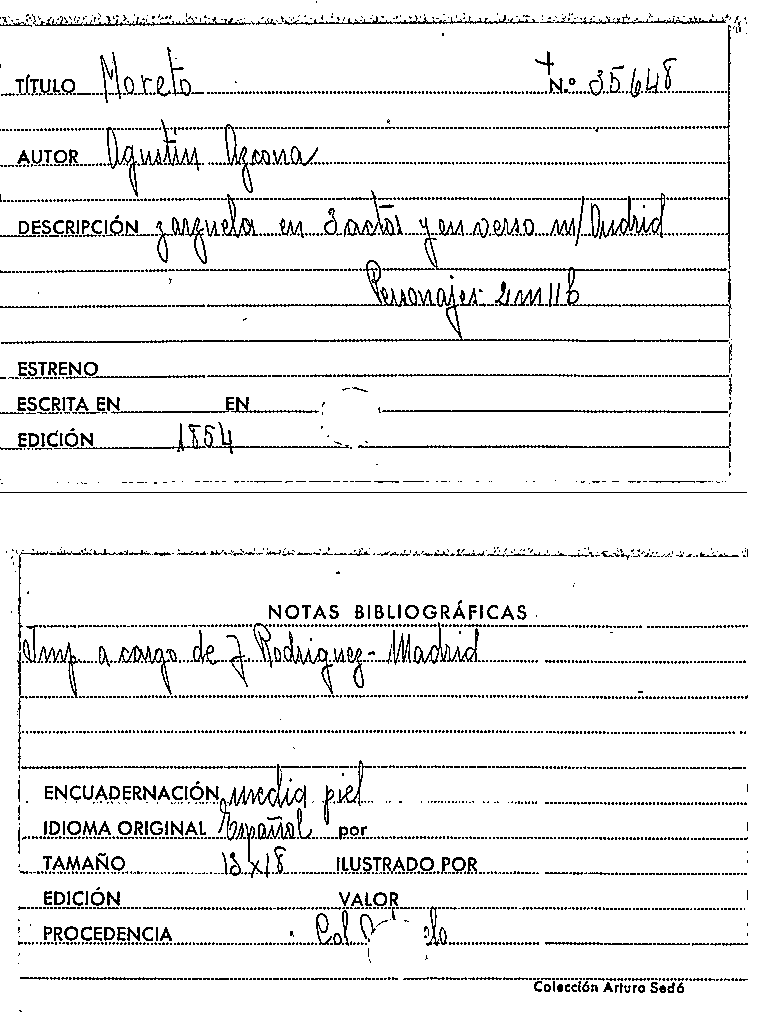 TÍTULO Moreto N.º 35648
AUTOR Agustín Azcona
DESCRIPCIÓN zarzuela en 3 actos y en verso m/ Oudrid
Personajes 2 m 11 b
ESTRENO
ESCRITA EN EN
EDICIÓN 1854
NOTAS BIBLIOGRÁFICAS
Imp a cargo de J. Rodriguez - Madrid
ENCUADERNACIÓN media piel
IDIOMA ORIGINAL Español por
TAMAÑO 13 x 18 ILUSTRADO POR
EDICIÓN VALOR
PROCEDENCIA Col
Colección Arturo Sedó